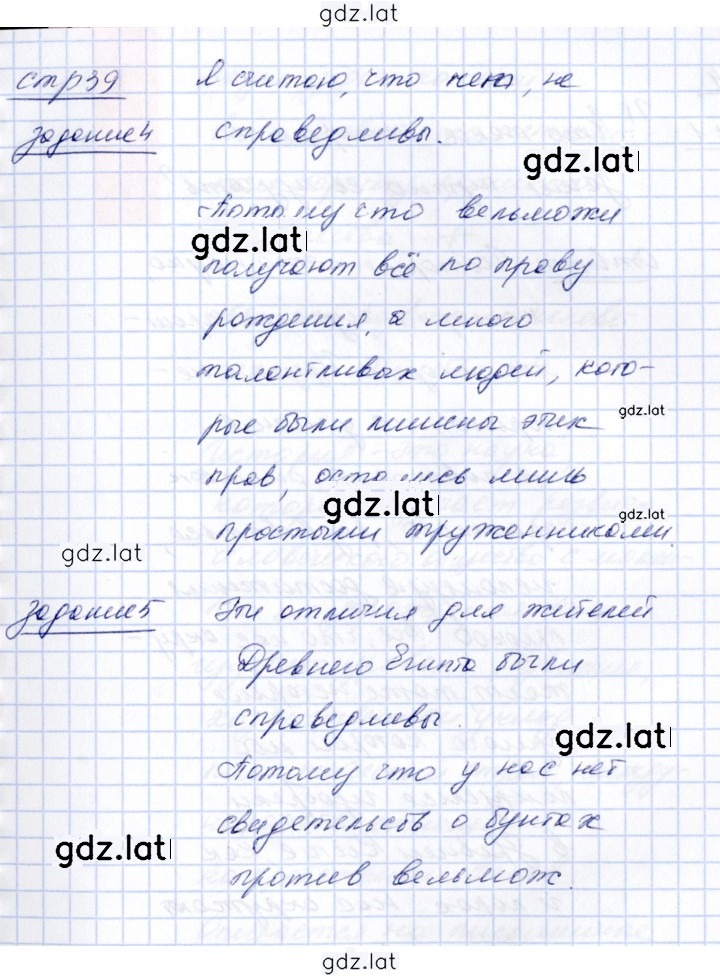 gdz.lat
стр39 Я считаю, что нет, не
задание4 справедливы.
gdz.lat
Потому что вельможи
gdz.lat
получают всё по праву
рождения, а много
талантливах людей, кото-
рые были лишены этих
gdz.lat
прав, остались лишь
gdz.lat
gdz.lat
простыми труженниками.
gdz.lat
задание5 Эти отличия для жителей
Древнего Египта были
справедливы.
gdz.lat
Потому что у нас нет
свидетельств о бунтах
gdz.lat
против вельмож.
gdz.lat